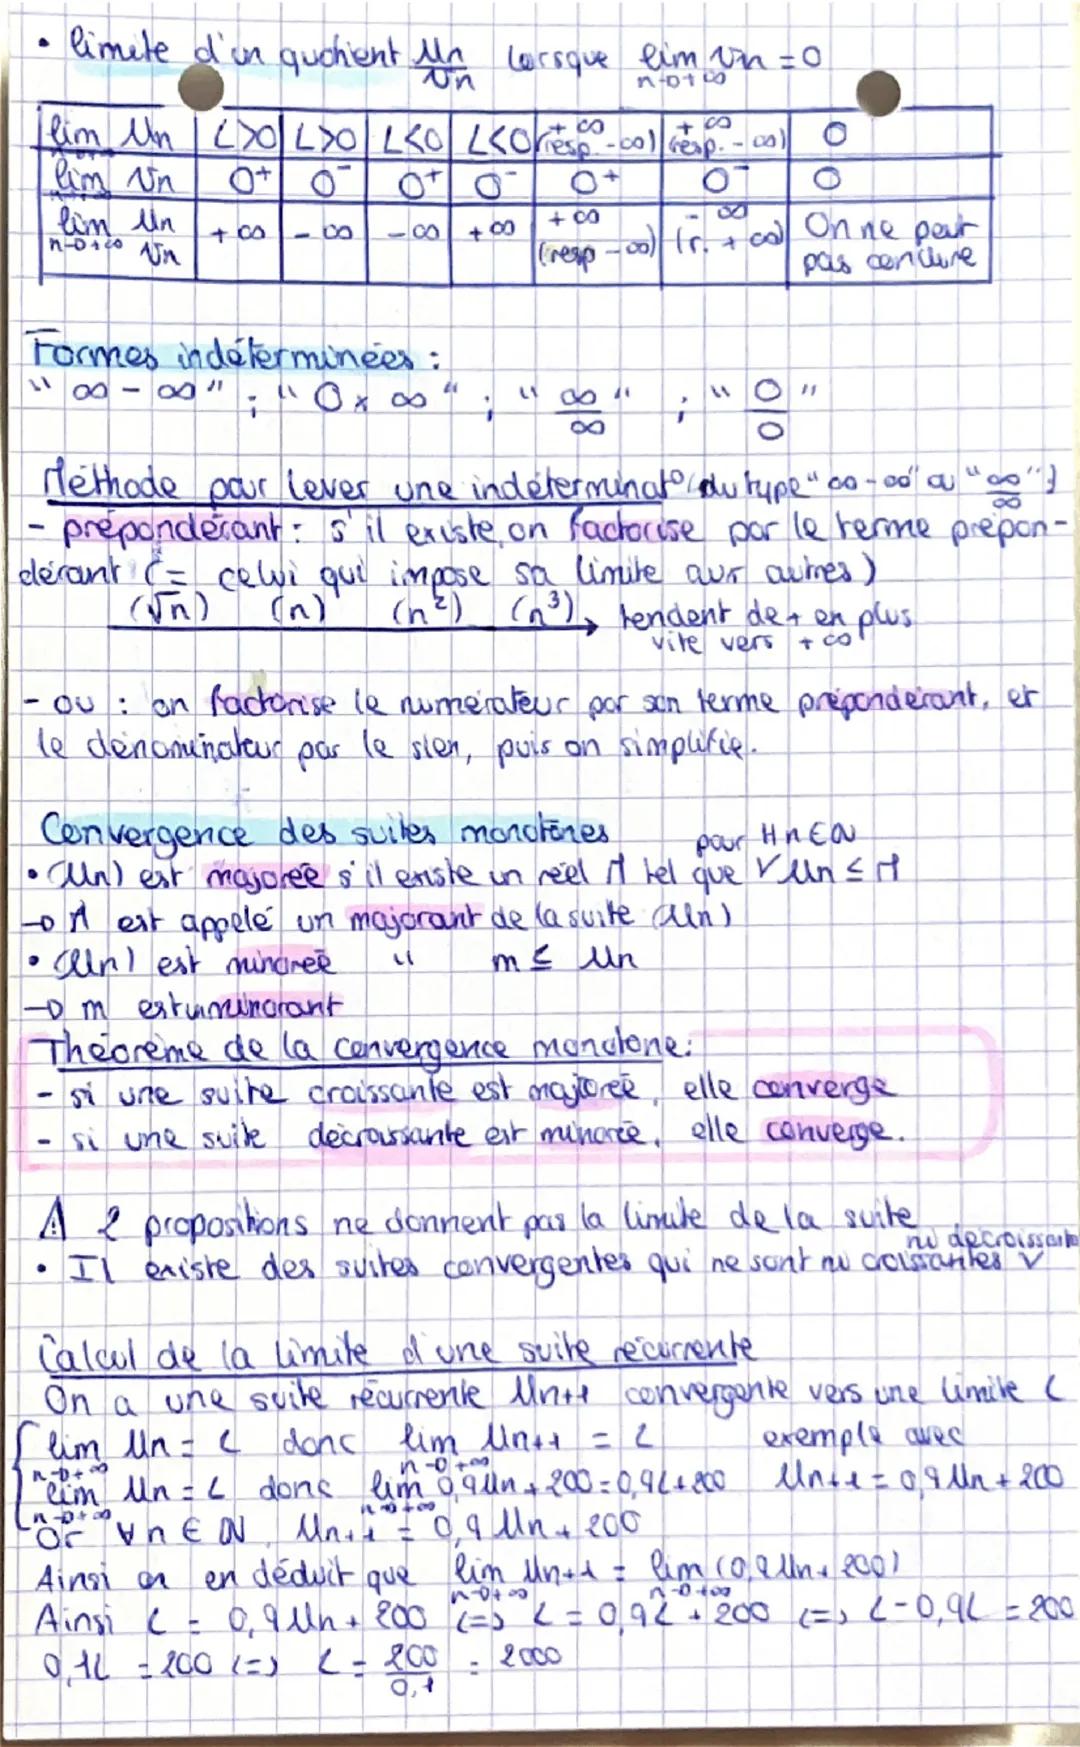 • limite d'un quotient Un/Vn lorsque lim Vn = 0
n→+∞
lim Un | L>0 | L>0 | L<0 | L<0 | +∞ (resp. -∞) | +∞ (resp. -∞) | 0
lim Vn | 0+ | 0- | 0+ | 0- | 0+ | 0- | 0
lim Un/Vn n→+∞ | +∞ | -∞ | -∞ | +∞ | +∞ (resp -∞) | -∞ (r. +∞) | On ne peut pas conclure
Formes indéterminées :
"∞ - ∞" ; "0 × ∞" ; "∞/∞" ; "0/0"
Méthode pour lever une indéterminat° (du type "∞-∞" ou "∞/∞")
- prépondérant : s'il existe, on factorise par le terme prépon-
dérant (= celui qui impose sa limite aux autres)
(√n) (n) (n²) (n³) → tendent de + en plus
vite vers +∞
- ou : on factorise le numérateur par son terme prépondérant, et
le dénominateur par le sien, puis on simplifie.
Convergence des suites monotones
pour ∀n∈N
• (Un) est majorée s'il existe un réel M tel que V Un ≤ M
→ M est appelé un majorant de la suite (Un)
• (Un) est minorée " m ≤ Un
→ m est un minorant
Théorème de la convergence monotone :
- si une suite croissante est majorée, elle converge
- si une suite décroissante est minorée, elle converge.
⚠ 2 propositions ne donnent pas la limite de la suite
ni décroissante
• Il existe des suites convergentes qui ne sont ni croissantes V
Calcul de la limite d'une suite récurrente
On a une suite récurrente Un+1 convergente vers une limite L
lim Un = L donc lim Un+1 = L exemple avec
n→+∞ n→+∞
lim Un = L donc lim 0,9Un + 200 = 0,9L+200 Un+1 = 0,9 Un + 200
n→+∞ n→+∞
Or ∀n ∈ N, Un+1 = 0,9 Un + 200
Ainsi on en déduit que lim Un+1 = lim (0,9Un + 200)
n→+∞ n→+∞
Ainsi L = 0,9 Un + 200 <=> L = 0,9L + 200 <=> L - 0,9L = 200
0,1L = 200 <=> L = 200/0,1 = 2000